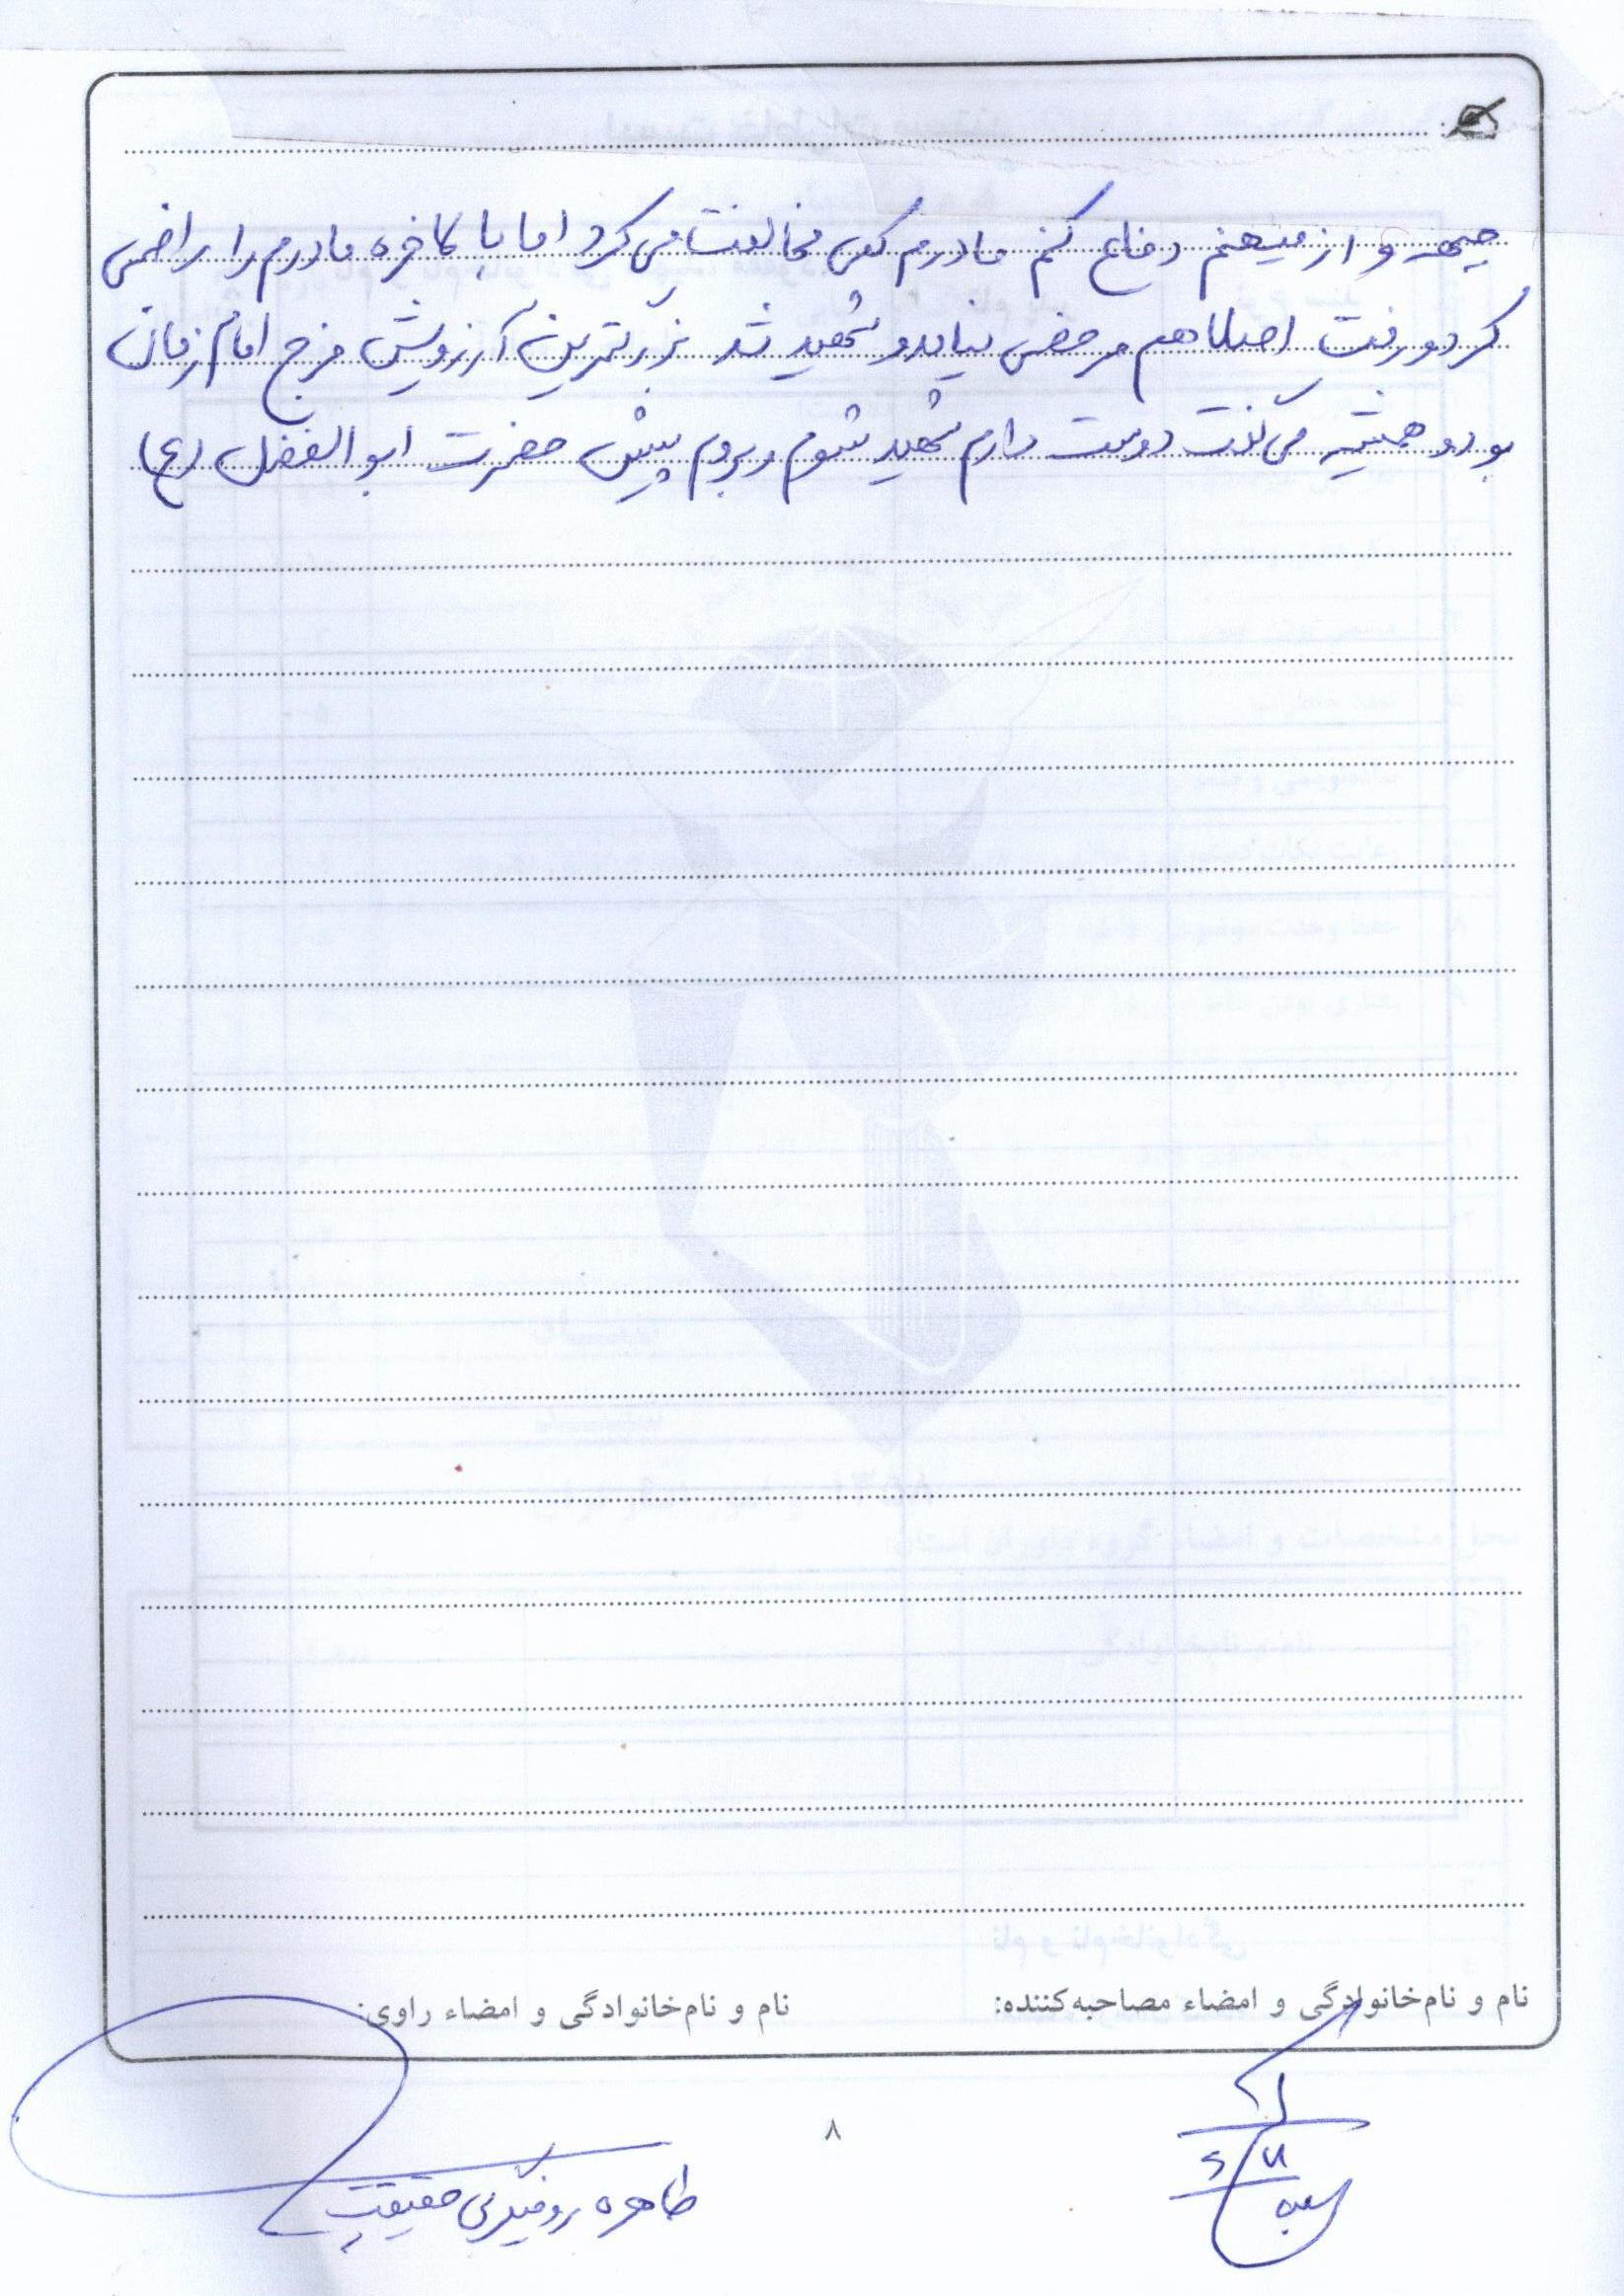 جبهه و از میهنم دفاع کنم مادرم کمی مخالفت می کرد اما بالاخره مادرم را راضی
کرد و رفت اصلا هم مرخصی نیامد و شهید شد بزرگترین آرزویش فرج امام زمان
بود و همیشه می گفت دوست دارم شهید شوم و بروم پیش حضرت ابوالفضل (ع)
نام و نام‌خانوادگی و امضاء مصاحبه‌کننده:
نام و نام‌خانوادگی و امضاء راوی:
۸
طاهره روفیگری حقیقت